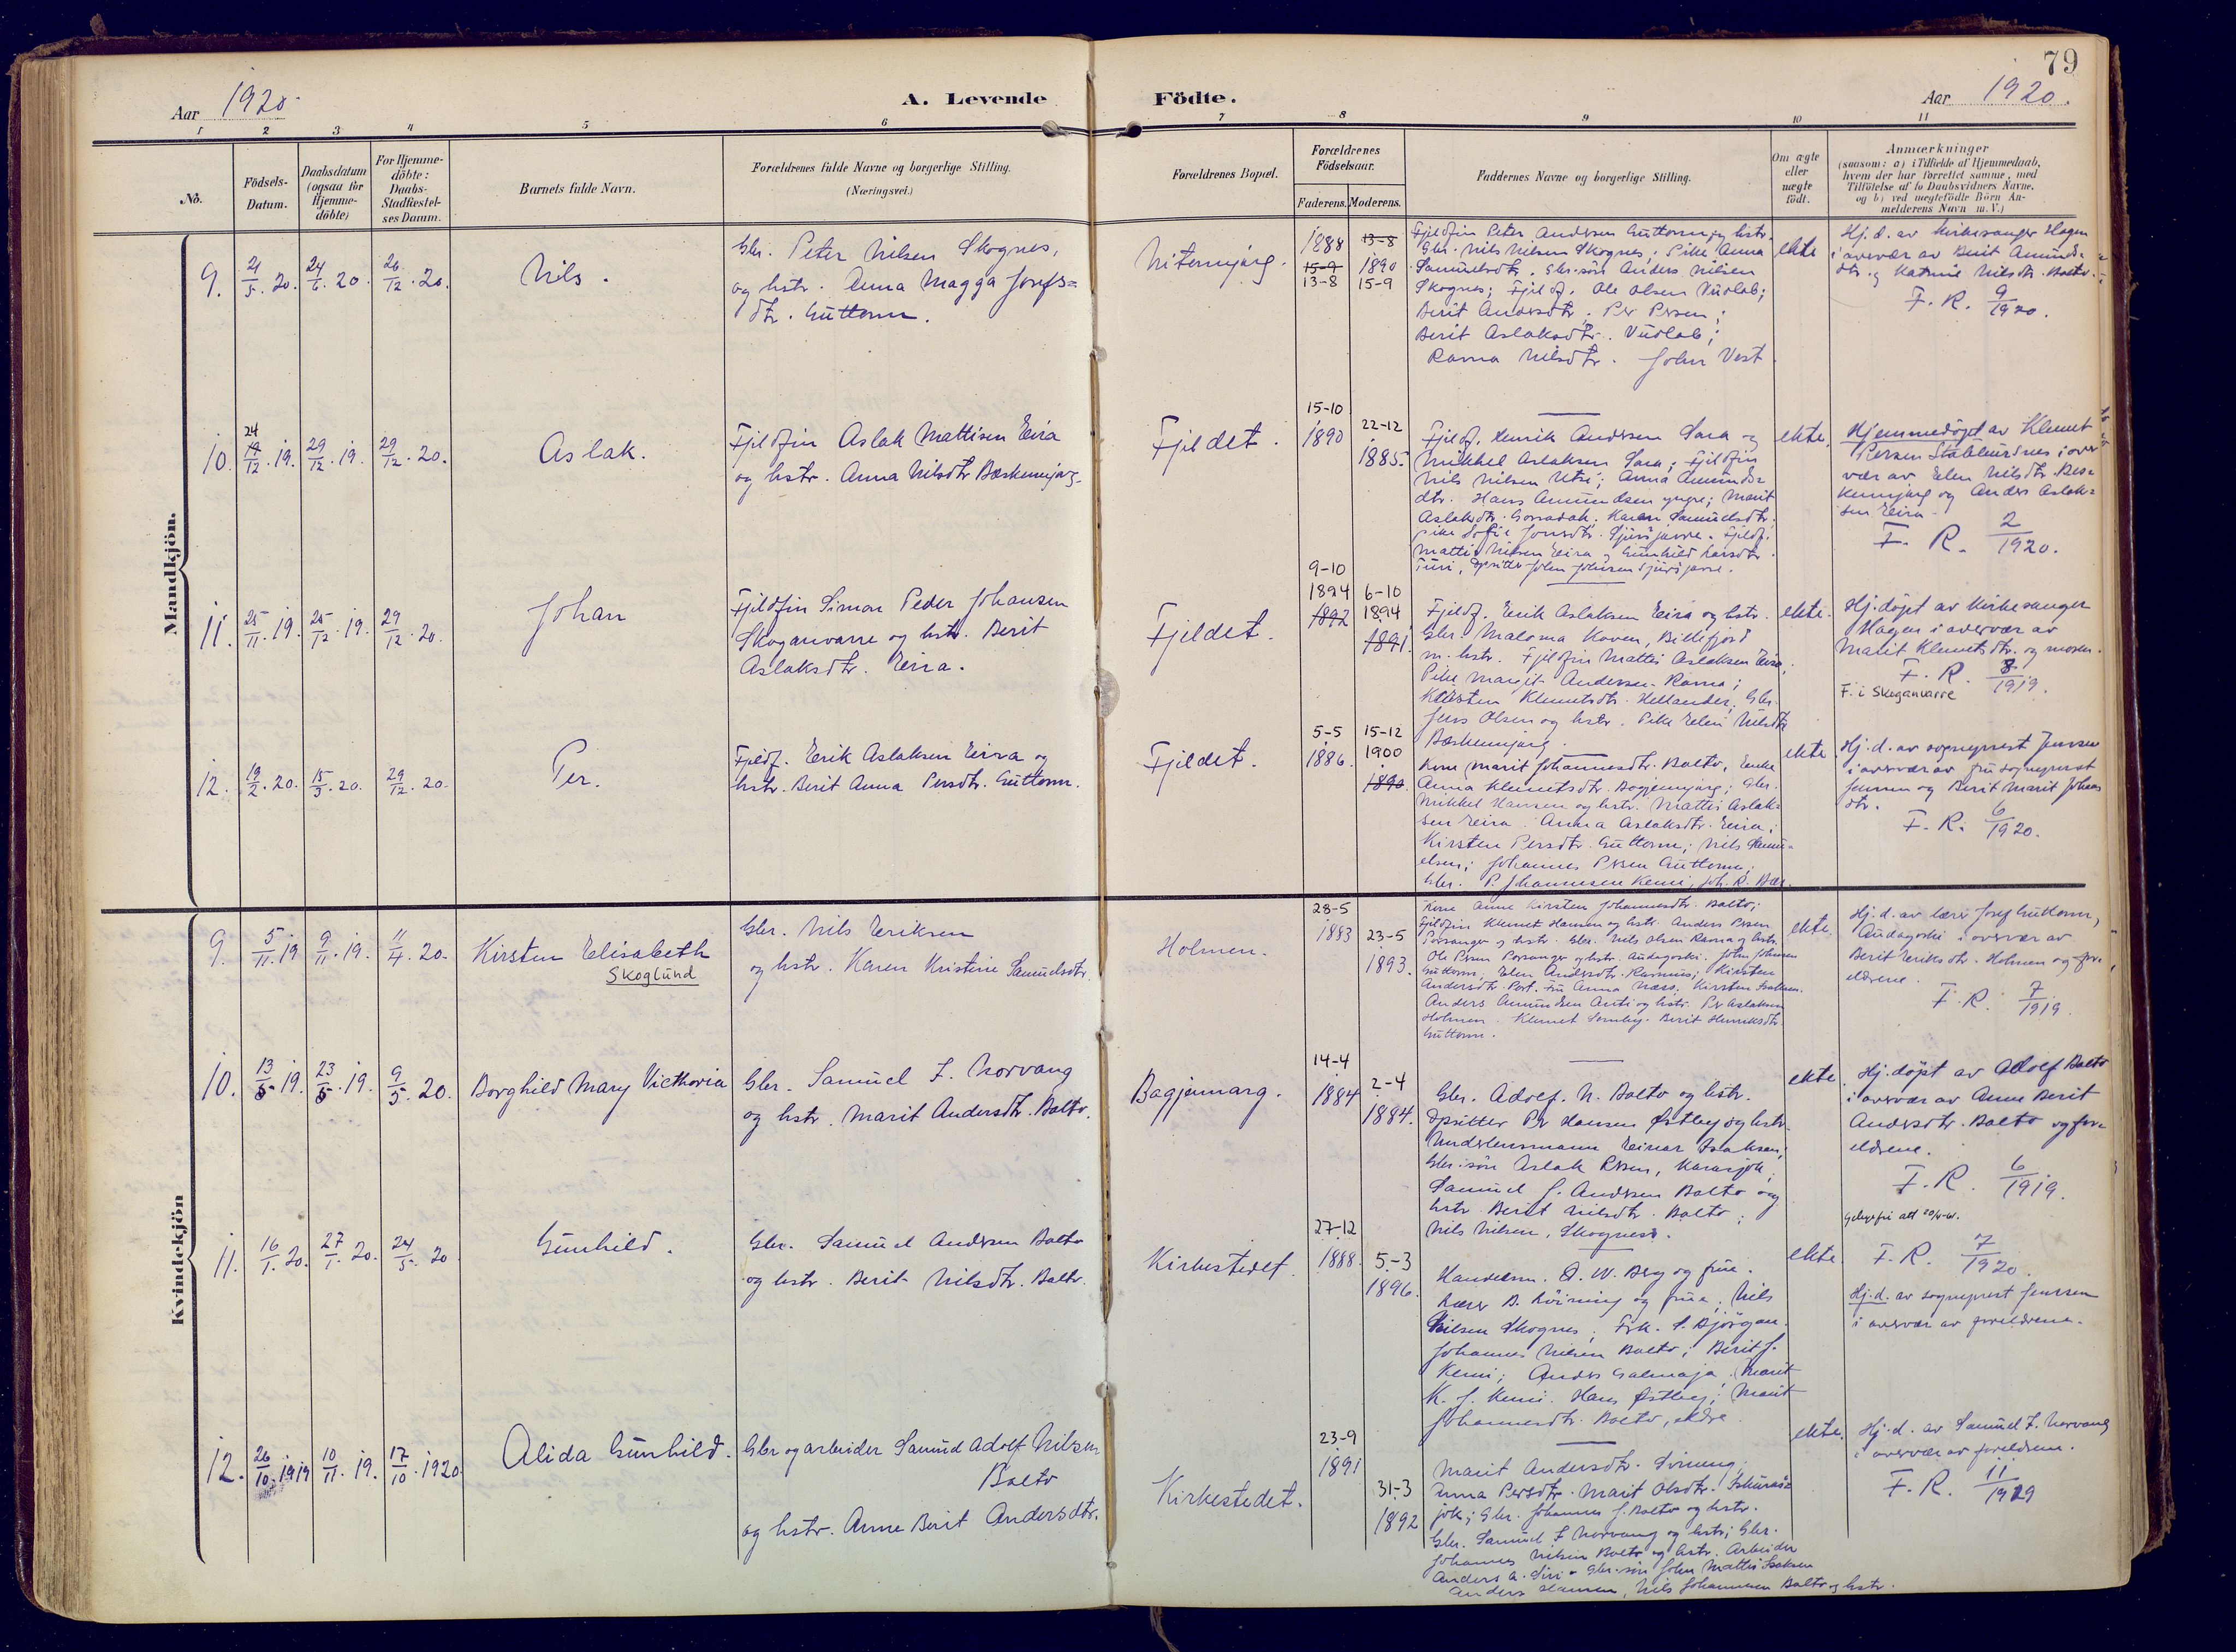 79
Aar 1920
A. Levende
Födte.
Aar 1920.
1 2 3 4 5 6 7 8 9 10 11
No.
Födsels-
Datum.
Daabsdatum
(ogsaa for
Hjemme-
döbte)
For Hjemme-
döbte:
Daabs-
Stadfæstel-
ses Datum.
Barnets fulde Navn.
Forældrenes fulde Navne og borgerlige Stilling.
(Næringsvei.)
Forældrenes Bopæl.
Forældrenes
Födselsaar.
Faderens. Moderens.
Faddernes Navne og borgerlige Stilling.
Om ægte
eller
uægte
födt.
Anmærkninger
(saasom: a) i Tilfælde af Hjemmedaab,
hvem der har forrettet samme, med
Tilföielse af to Daabsvidners Navne.
og b) ved uægtefödte Börn An-
melderens Navn m. V.)
Mandkjön.
9. 21/5. 20. 24/6. 20. 26/12. 20.
Nils.
Gbr. Peter Nilsen Skognes,
og hstr. Anna Magga Josefs=
dtr. Guttorm.
1888 13-8
15-9 1890
13-8 15-9
Fjeldfin Peter Andersen Guttorm og hstr.
Gbr. Nils Nilsen Skognes; Pike Anna
Samuelsdtr. Gbr.søn Anders Nilsen
Skognes; Fjeldf. Ole Olsen Vuolab;
Berit Andersdtr. Per Persen;
Berit Aslaksdtr. Vuolab;
Ravna Nilsdtr. John Vest
ekte
Hj. d. av kirkesanger Hagen
i overvær av Berit Amunds-
dtr. og Katrine Nilsdtr. Balto.
F. R. 9/1920.
10. 24 19/12. 19. 29/12. 19. 29/12. 20.
Aslak.
Fjeldfin Aslak Mattisen Eira
og hstr. Anna Nilsdtr Bæskenjarg.
Fjeldet.
15-10
1890
22-12
1885.
Fjeldf. Henrik Andersen Sara og
Mikkel Aslaksen Sara; Fjeldfin
Nils Nilsen Utsi; Anna Amunds=
dtr. Hans Amundsen yngre; Marit
Aslaksdtr. Karen Samuelsdtr.
pike Sofie Jonsdtr. Fjeldf.
Mattis Nilsen Eira og Gunhild Larsdtr.
ekte.
Hjemmedøpt av Klemet
Persen Stabbursnes i over
vær av Elen Nilsdtr. Bes=
kenjarg og Anders Aslak=
sen Eira.
F. R. 2/1920.
11. 25/11. 19. 25/12. 19. 29/12. 20.
Johan
Fjeldfin Simon Peder Johansen
Skoganvarre og hstr. Berit
Aslaksdtr. Eira.
Fjeldet.
9-10
1894
1892
6-10
1894
1891.
Fjeldf. Erik Aslaksen Eira og hstr.
Gbr. Maloma Koven, Billefjord
m. hstr. Fjeldfin Mattis Aslaksen Eira,
Pike Margit Andersen Ravna;
Kirsten Klemetsdtr. Hellander; Gbr.
Jens Olsen og hstr. Pike Elen Nilsdtr
Bæskenjarg.
ekte.
Hj. døpt av kirkesanger
Hagen i overvær av
Marit Klemetsdtr. og moren.
F. R. 8/1919.
F. i Skoganvarre
12. 19/2. 20. 15/3. 20. 29/12. 20.
Per.
Fjeldf. Erik Aslaksen Eira og
hstr. Berit Anna Persdtr. Guttorm.
Fjeldet.
5-5
1886.
15-12
1900
1890.
Kone Marit Johannesdtr. Balto, Enke
Anna Klemetsdtr. Bagjenjarg; Gbr.
Mikkel Hansen og hstr. Mattis Aslak=
sen Eira. Anna Aslaksdtr. Eira;
Kirsten Persdtr. Guttorm; Nils Samu=
elsen; Johannes Persen Guttorm;
Gbr. P. Johannesen Kemi,
ekte
Hj. d. av sogneprest Jenssen
i overvær av fru sogneprest
Jenssen og Berit Marit Johans
dtr.
F. R. 6/1920.
Kvindekjön
9. 5/11. 19 9/11. 19. 11/4. 20.
Kirsten Elisabeth
Skoglund
Gbr. Nils Eriksen
og hstr. Karen Kristine Samuelsdtr.
Holmen.
28-5
1883
23-5
1893.
Kone Anne Kirsten Johannesdtr. Balto;
Fjeldfin Klemet Hansen og hstr. Anders Persen
Porsanger og hstr. Gbr. Nils Olsen Ravna og hstr.
Ole Persen Porsanger og hstr. Audagoski. John Johnsen
Guttorm; Elen Andersdtr. Rasmus; Kirsten
Andersdtr. Port. Fru Anna Næss. Kirsten Isaksen.
Anders Amundsen Anti og hstr. Per Aslaksen
Holmen. Klemet Somby. Berit Henriksdtr.
Guttorm.
ekte.
Hj. d. av lærer Josef Guttorm,
Audagoski i overvær av
Berit Eriksdtr. Holmen og for=
eldrene.
F. R. 7/1919.
10. 13/5. 19. 23/5. 19. 9/5. 20.
Borghild Mary Victhoria
Gbr. Samuel F. Norvang
og hstr. Marit Andersdtr. Balto.
Bagjenarg.
14-4
1884
2-4
1884.
Gbr. Adolf. N. Balto og hstr.
Opsitter Per Hansen Østby og hstr.
Underlensmann Einar Isaksen;
Gbr. søn Aslak Persen, Karasjok;
Samuel J. Andersen Balto og
hstr. Berit Nilsdtr. Balto;
Nils Nilsen, Skognes.
ekte.
Hj. døpt av Adolf Balto
i overvær av Anne Berit
Andersdtr. Balto og for=
eldrene.
F. R. 6/1919.
11. 16/1. 20. 27/1. 20. 24/5. 20
Gunhild.
Gbr. Samuel Andersen Balto
og hstr. Berit Nilsdtr. Balto.
Kirkestedet.
27-12
1888.
5-3
1896.
Handelsm. O. W. Berg og frue.
Lærer B. Løining og frue; Nils
Nilsen Skognes; Frk. S. Bjørgan.
Johannes Nilsen Balto; Berit J.
Kemi; Anders Salmaja. Marit
K. J. Kemi. Hans Østby; Marit
Johannesdtr. Balto, eldre.
ekte.
F. R. 7/1920.
Hj. d. av sogneprest Jenssen
i overvær av foreldrene.
12. 26/10. 1919 10/11. 19. 17/10. 1920.
Alida Gunhild.
Gbr og arbeider Samuel Adolf Nilsen
Balto
og hstr. Anne Berit Andersdtr.
Kirkestedet.
23-9
1891
31-3
1892
Marit Andersdtr.
Anna Persdtr. Marit Olsdtr.
jok; Gbr. Johannes J. Balto og hstr.
Gbr. Samuel F. Norvang og hstr; Gbr.
Johannes Nilsen Balto og hstr. Arbeider
Anders A. Siri - Gbr. søn John Mattis Isaksen
Anders Hansen, Nils Johannesen Balto og hstr.
ekte.
Hj. d. av Samuel F. Norvang
i overvær av foreldrene.
F. R. 11/1919